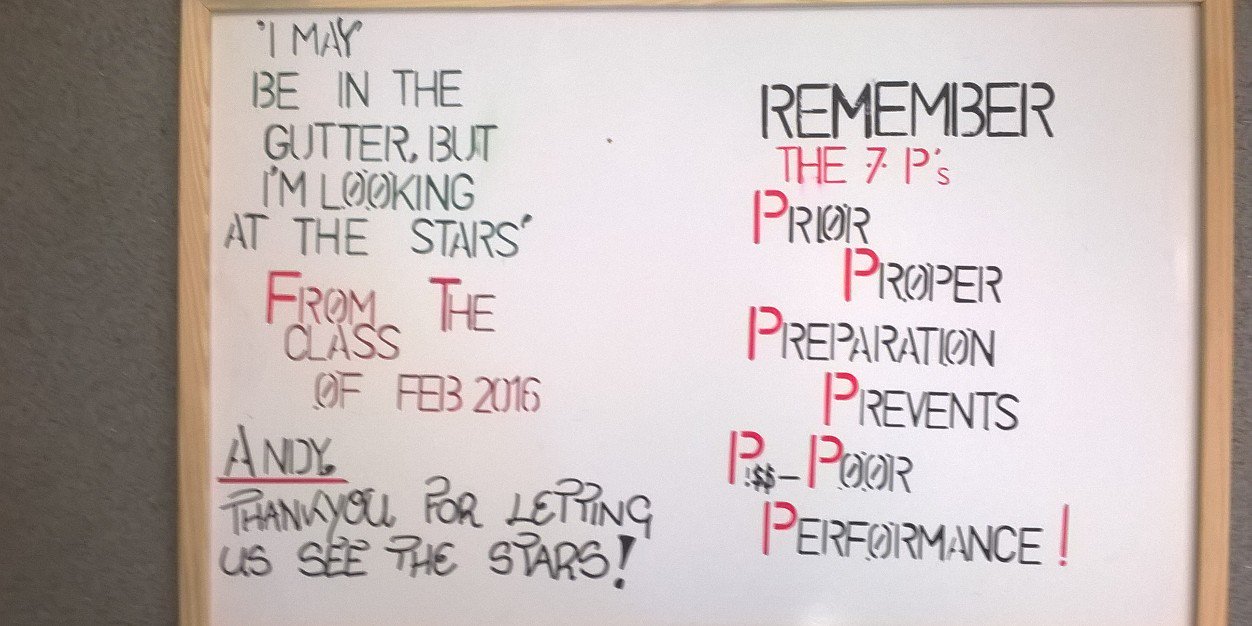 'I MAY
BE IN THE
GUTTER, BUT
I'M LOOKING
AT THE STARS'
FROM THE
CLASS
OF FEB 2016
ANDY,
THANKYOU FOR LETTING
US SEE THE STARS!
REMEMBER
THE 7 P's
PRIOR
PROPER
PREPARATION
PREVENTS
P!$$-POOR
PERFORMANCE!